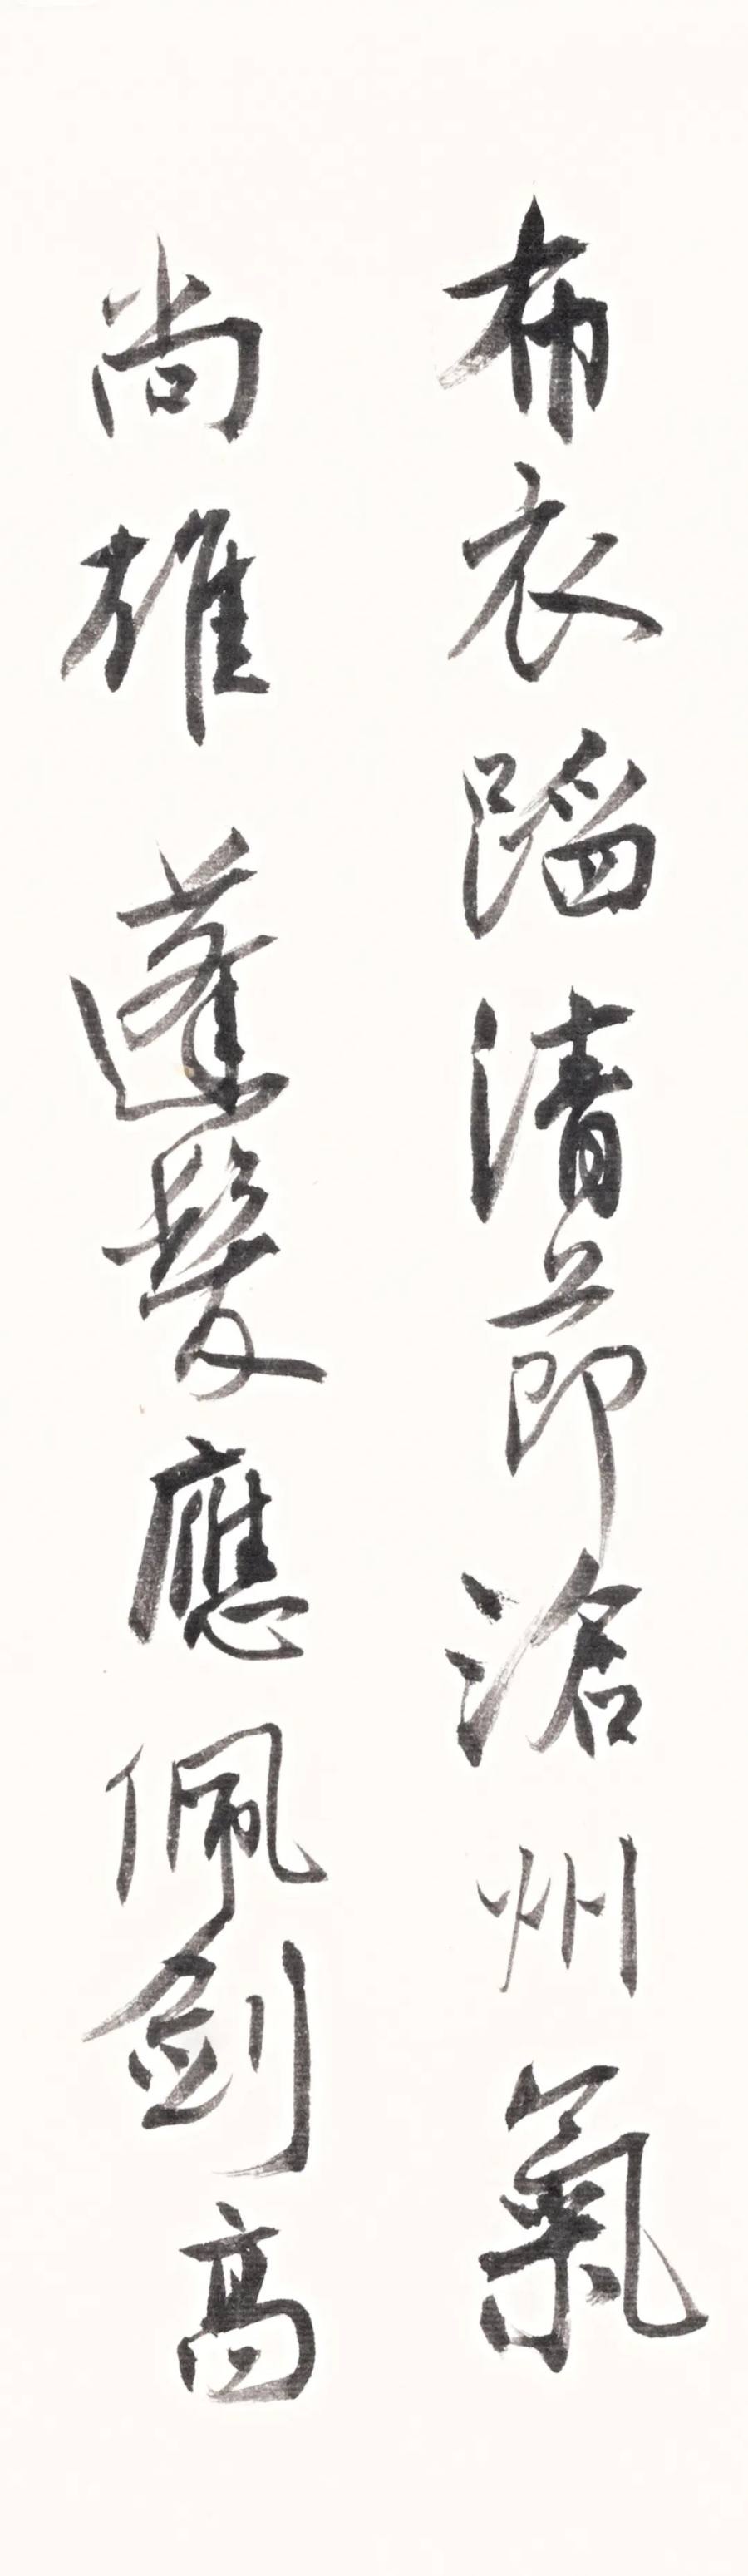 布衣蹈清節滄州氣
尚雄蓬鬢應佩劍高